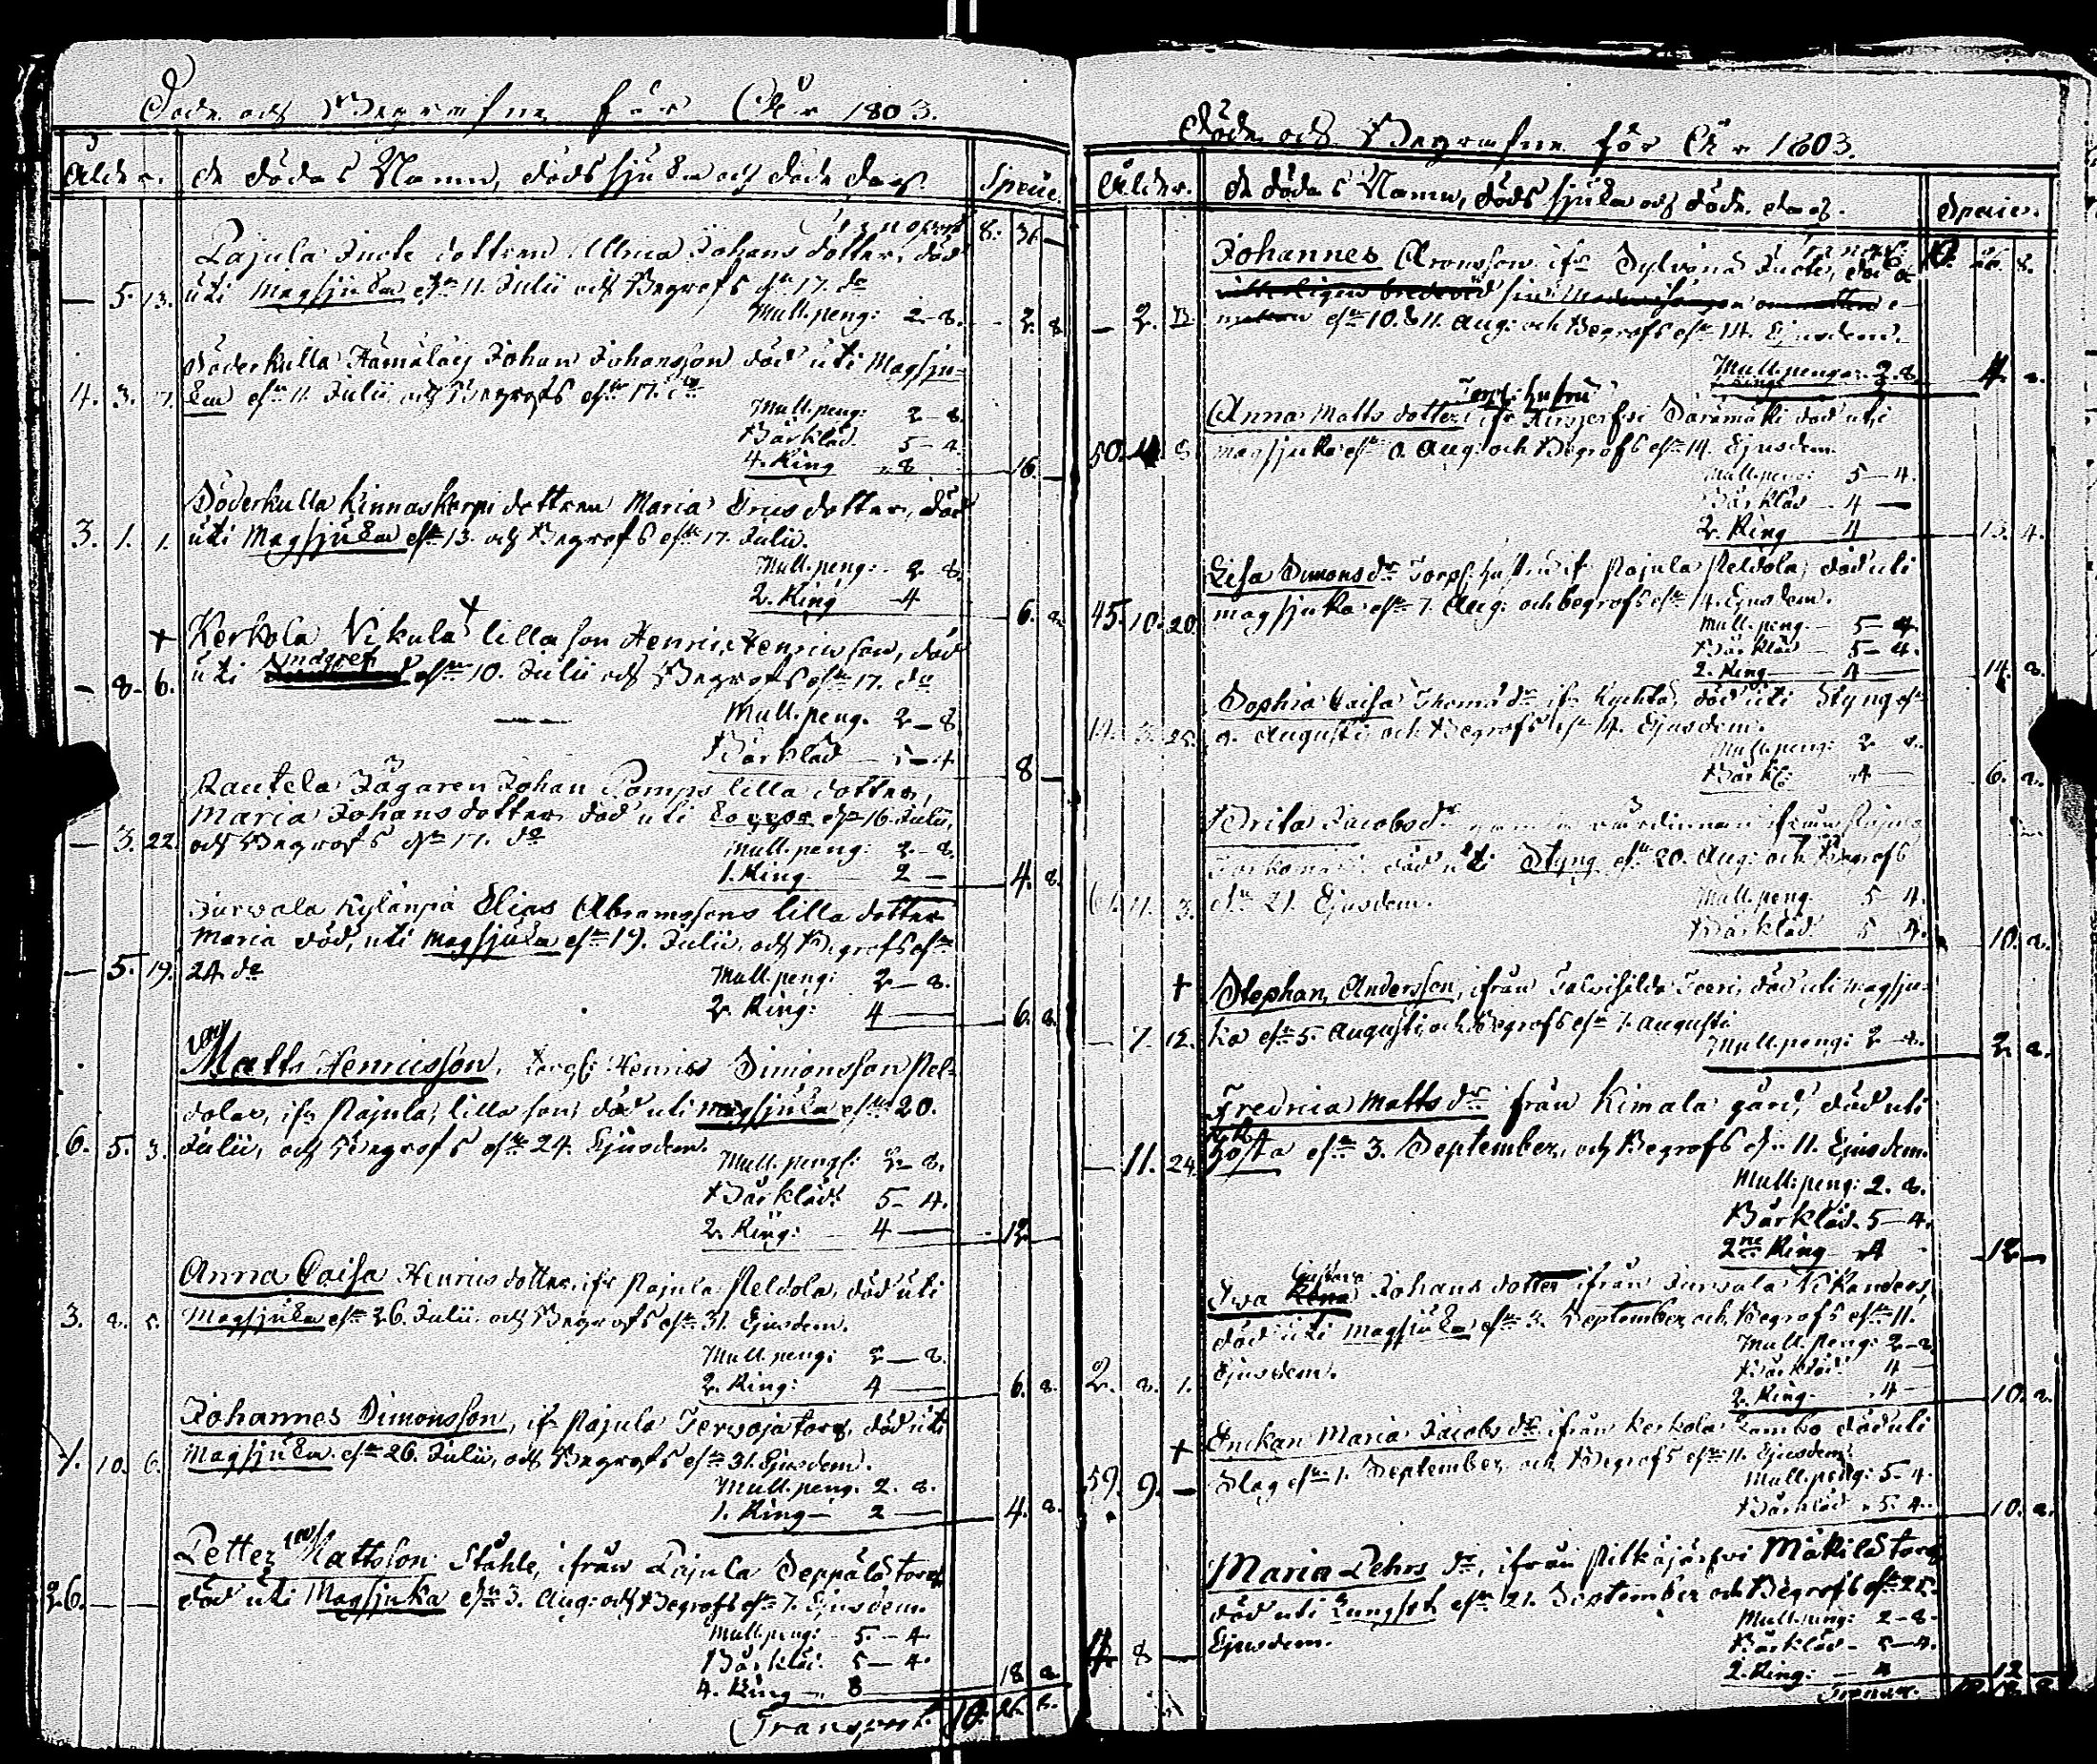 Döde och Begrafne för Åhr 1803.
Ålder. de dödas Namn, döds sjuka och döde dag Specie.
Transport 8. 31. —
Pajula Inote dottren Ulrica Johans dotter, död
— 5. 13. uti Magsjuka dn 11. Julii och Begrofs dn 17. do
Mull.peng: 2-8. - 2. 8
Söderkulla Hämäläis Johan Johansson död uti Magsju-
4. 3. 7. ka dn 11. Julii och Begrofs dn 17. do
Mull.peng: 2-8.
Bårkläd. 5-4.
4. Ring 8 16. —
Söderkulla Kinnaskorpi dottren Maria Erics dotter, död
3. 1. 1. uti Magsjuka dn 13. och Begrofs dn 17. Julii.
Mull.peng: 2-8.
2. Ring 4 6. 8.
+ Kerkola Nikula lilla son Henric Henricsson, död
— 8. 6. uti dn 10. Julii och Begrofs dn 17. do
Mull.peng. 2-8
Bårkläd 5-4 8 —
Rautela Jägaren Johan Pomps lilla dotter,
Maria Johansdotter död uti Koppor dn 16. Julii,
— 3. 22. och Begrofs dn 17. do
Mull.peng: 2-8.
1. Ring 2 — 4. 8.
Turvala Kylänpä Elias Abramssons lilla dotter
Maria död, uti Magsjuka dn 19. Julii, och Begrofs dn
— 5. 19. 24. do
Mull.peng: 2-8.
2. Ring: 4 — 6. 8.
Matts Henricsson, torp: Henrics Simonsson Pel-
dolas, ifr Pajula, lilla son, död uti magsjuka dn 20.
6. 5. 3. Julii, och Begrofs dn 24. Ejusdem.
Mull.peng: 2-8.
Bårkläd. 5-4.
2. Ring: 4 — 12. —
Anna Caisa Henrics dotter, ifr Pajula Peldola, död uti
3. 8. 5. Magsjuka dn 26. Julii. och Begrofs dn 31. Ejusdem.
Mull.peng: 2-8.
2. Ring: 4 — 6. 8.
Johannes Simonsson, ifr Pajula Jervoja torp, död uti
1. 10. 6. Magsjuka. dn 26. Julii, och Begrofs dn 31. Ejusdem.
Mull.peng. 2. 8.
1. Ring — 2 — 4. 8.
Petter Mattsson Ståhle, ifrån Pajula Seppälä torp
26. — — död uti Magsjuka dn 3. Aug: och Begrofs dn 7. Ejusdem.
Mull.peng: 5-4.
Bårkläd. 5-4.
4. Ring — 8 18. 8.
Transport. 10. 26. 8.
Döde och Begrafne för År 1803.
Ålder. de dödas Namn, döds sjuka och döde dag. Specier.
Transp. 10. 26. 8.
Johannes Aronsson ifr Sylvänä Inote, död
— 2. 13. dn 10. 11. Aug: och Begrofs dn 14. Ejusdem.
Mull.pengar. 2. 8.
Torp: hustru
Anna Matts dotter, ifr Kirjerfvi Saramäki död uti
50. 8. magsjuka dn 8. Aug: och Begrofs dn 14. Ejusdem.
Mull.peng: 5-4.
Bårkläd 4 —
2. Ring 4 13. 4.
Lisa Simons dr Torp: hustru ifr Pajula Peldola, död uti
45. 10. 20 magsjuka dn 7. Aug: och begrofs dn 14. Ejusdem.
Mull.peng. 5-4.
Bårkläd 5-4.
2. Ring 4 14. 8.
Sophia Caisa Thoms dr ifr död uti Styng dn
8. Augusti och Begrofs dn 14. Ejusdem.
Mull.peng: 2-8.
Bårkl: 4 — 6. 8.
Brita Jacobs dr
död uti Styng dn 20. Aug: och Begrofs
11. 3. dn 21. Ejusdem.
Mull.peng. 5 4.
Bårkläd. 5 4. 10. 8.
+ Stephan Andersson, ifrån död uti magsju-
— 7. 12. ka dn 5. Augusti, och Begrofs dn 7. augusti
Mull.peng: 2-8. 2. 8.
Fredrica Matts dr från Kimala gård, död uti
— 11. 24. hosta dn 3. September, och Begrofs dn 11. Ejusdem.
Mull.peng: 2. 8.
Bårkläd. 5-4.
2ne Ring 4 12 —
Gustava
Eva Johans dotter ifrån Turvala Nikanders,
död uti Magsjuka dn 3. September, och Begrofs dn 11.
2. 8. 1. Ejusdem.
Mull.peng: 2-8
Bårkläd: 4 —
2. Ring 4 — 10. 8.
+ Enkan Maria Jacobs dr ifrån Kerkola Lambo död uti
59. 9. — Slag dn 1. September, och Begrofs dn 11. Ejusdem.
Mull.peng: 5-4.
Bårkläd 5-4. 10. 8.
Maria Pehrs dr, ifrån Pitkäjärfvi Mäkilä torp
död uti Lungsot dn 21. September och Begrofs dn 25.
8 — Ejusdem.
Mull.peng: 2-8.
Bårkläd - 5-4.
2. Ring: 4 12 —